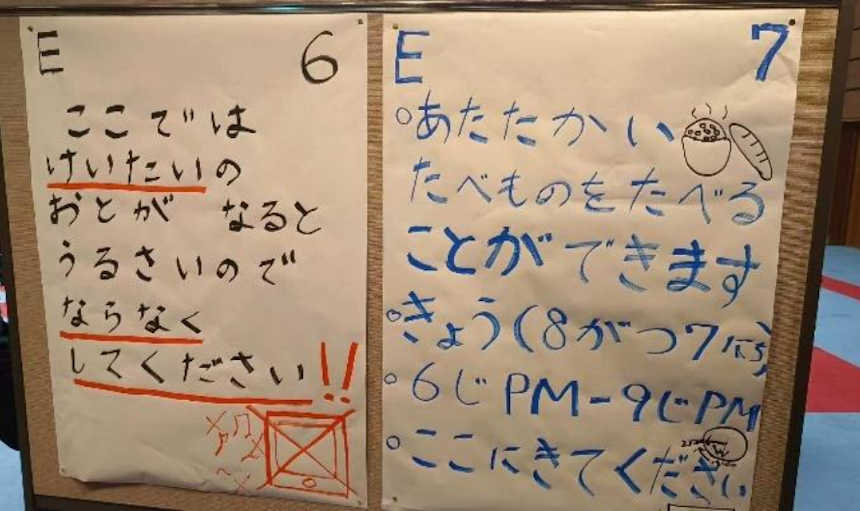 E 6
ここでは
けいたいの
おとが なると
うるさいので
ならなく
してください!!
E 7
○あたたかい
たべものをたべる
ことができます
○きょう(8がつ7にち)
○6じPM-9じPM
○ここにきてください